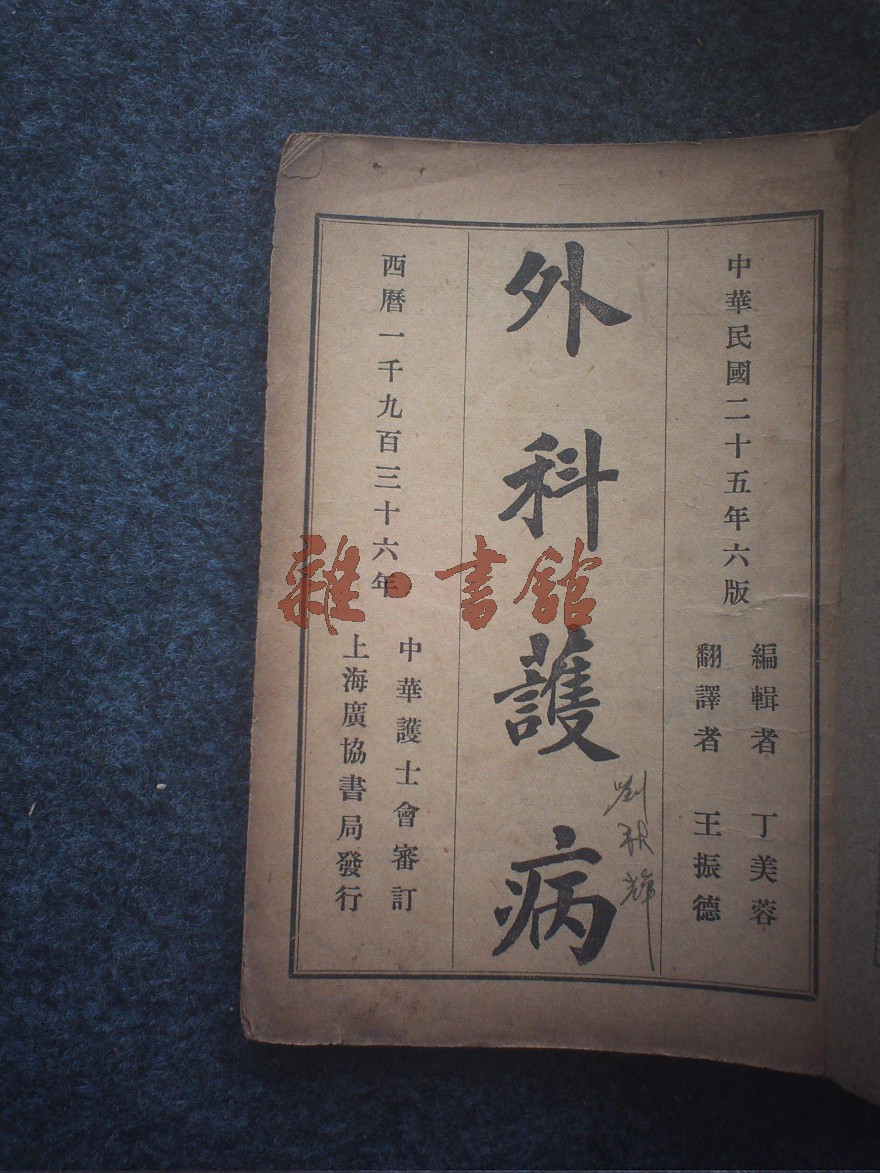 中華民國二十五年六版
編輯者　丁美蓉
翻譯者　王振德
外科護病
劉
輝
西曆一千九百三十六年
中華護士會審訂
上海廣協書局發行
雜·書館